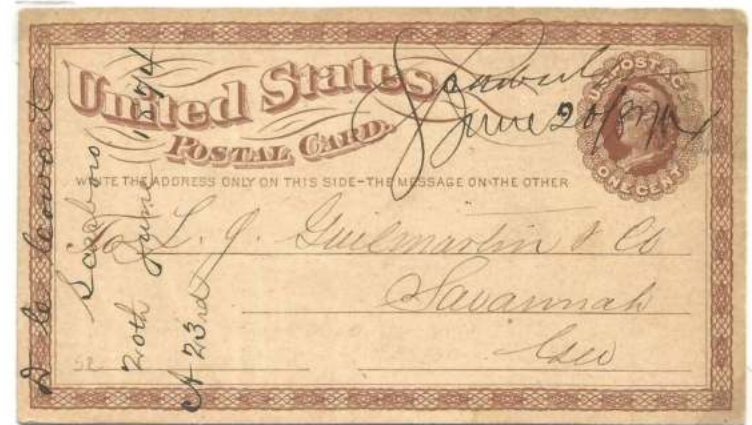 United States
POSTAL CARD.
U.S. POSTAGE
ONE CENT
June 20/874
WRITE THE ADDRESS ONLY ON THIS SIDE-THE MESSAGE ON THE OTHER
To L. J. Guilmartin & Co
Savannah
Geo
Scarboro
20th June 1874
A 23rd
52